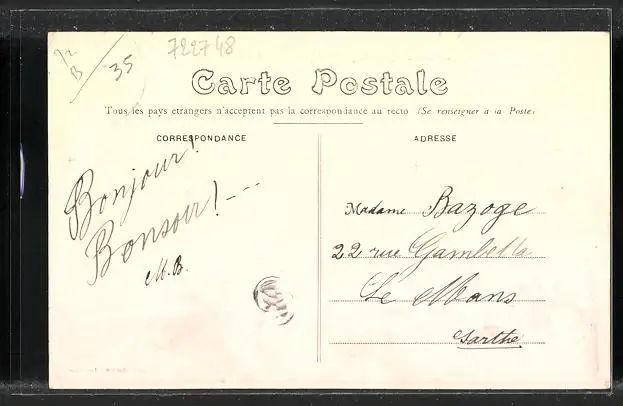 J2
B
35
722748
Carte Postale
Tous les pays etrangers n'acceptent pas la correspondance au recto (Se renseigner a la Poste)
CORRESPONDANCE
Bonjour!
Bonsoir! ---
M. B.
ADRESSE
Madame Bazoge
22 rue Gambetta
Le Mans
Sarthe